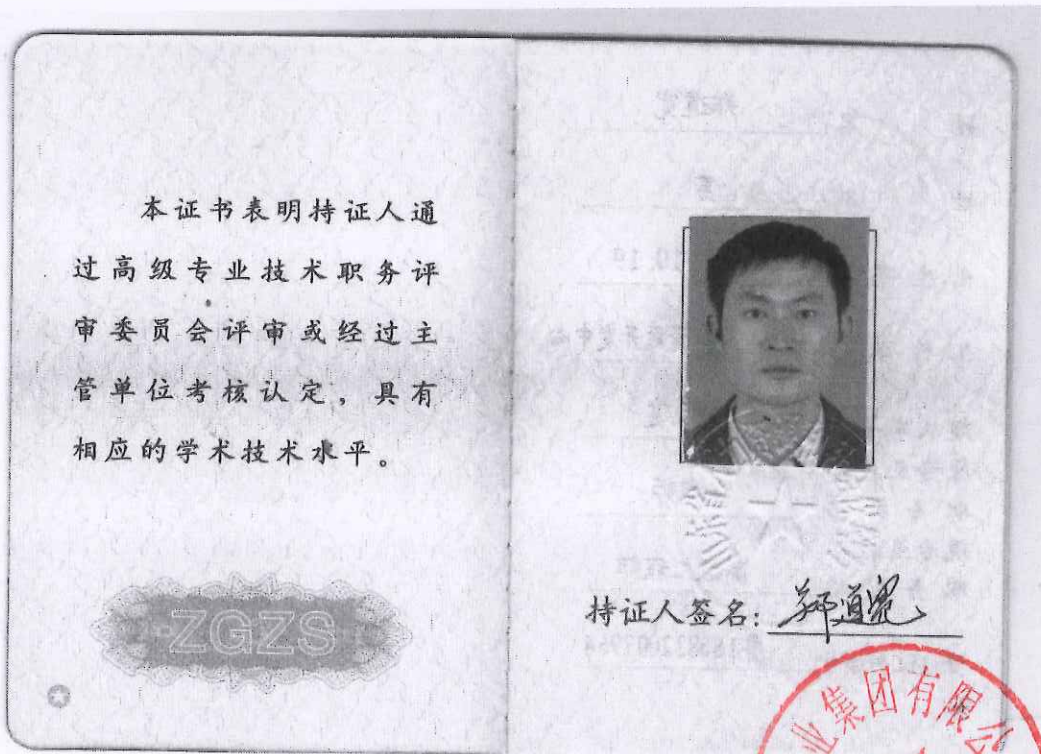 本证书表明持证人通
过高级专业技术职务评
审委员会评审或经过主
管单位考核认定，具有
相应的学术技术水平。
ZGZS
持证人签名：郑道宽
业集团有限公